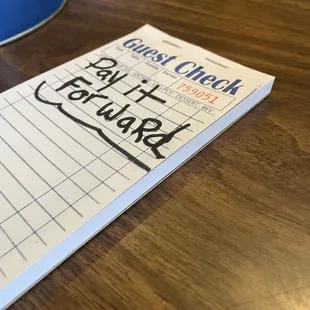 Guest Check
759051
Pay it
Forward